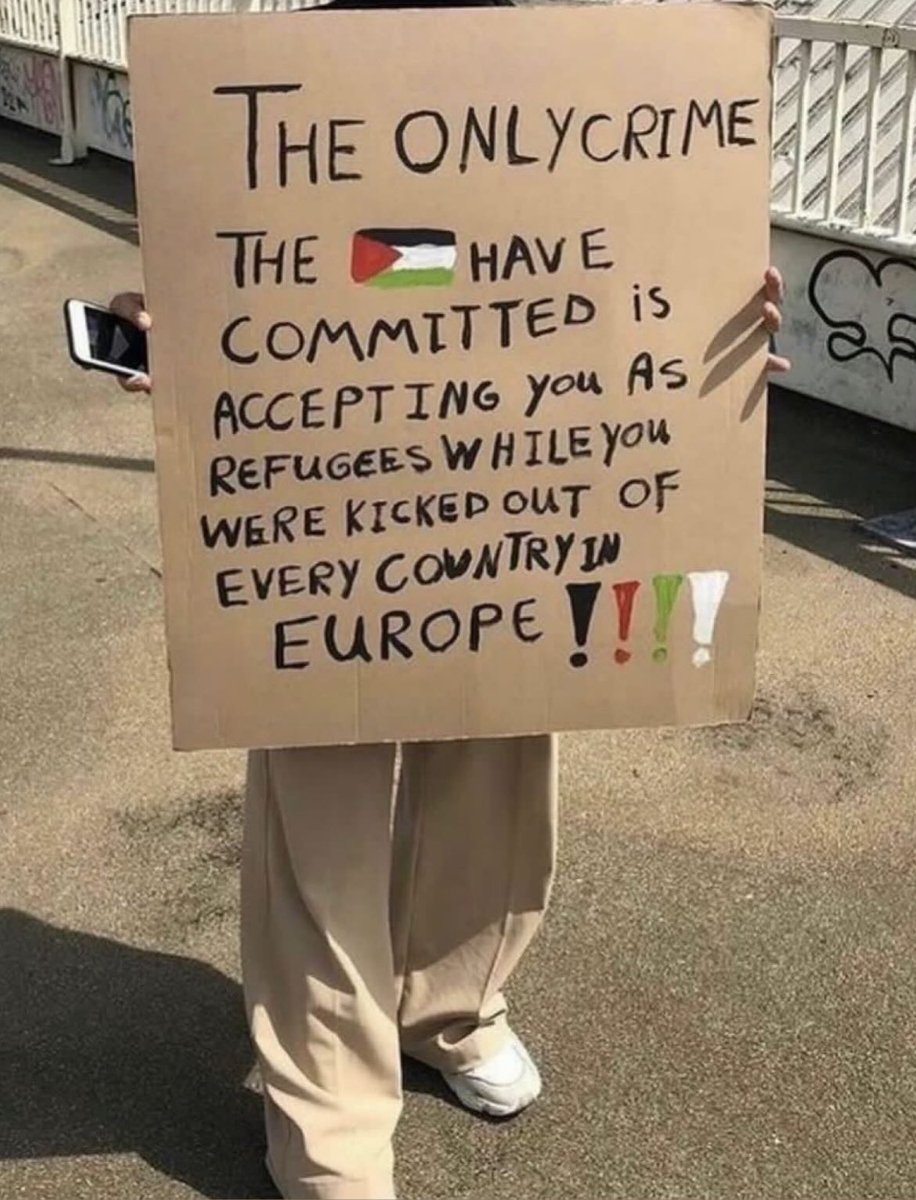 THE ONLY CRIME
THE 🇵🇸 HAVE
COMMITTED is
ACCEPTING you AS
REFUGEES WHILE YOU
WERE KICKED OUT OF
EVERY COUNTRY IN
EUROPE !!!!